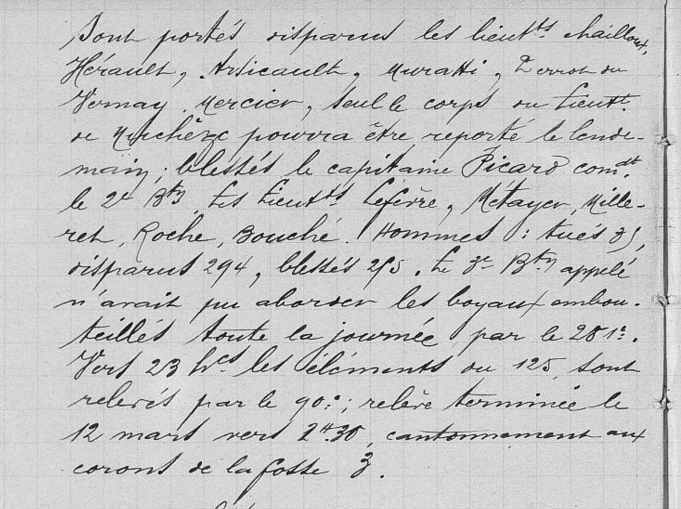 Sont portés disparus les lieut.ts Chailloux,
Hérault, Ardicault, Muratti, Perrot du
Vernay, Mercier, seul le corps du Lieut.t
de pourra être reporté le lende-
main; blessés le capitaine Picard com.dt
le 2e B.on, Les Lieut.ts Lefèvre, Métayer, Mille-
ret, Roche, Bouché. Hommes : tués 31,
disparus 294, blessés 215. Le 3e B.on appelé
n'avait pu aborder les boyaux embou-
teillés toute la journée par le 281e.
Vers 23 h.es les éléments du 125 sont
relevés par le 90e; relève terminée le
12 mars vers 2H.30, cantonnement aux
corons de la fosse 3.